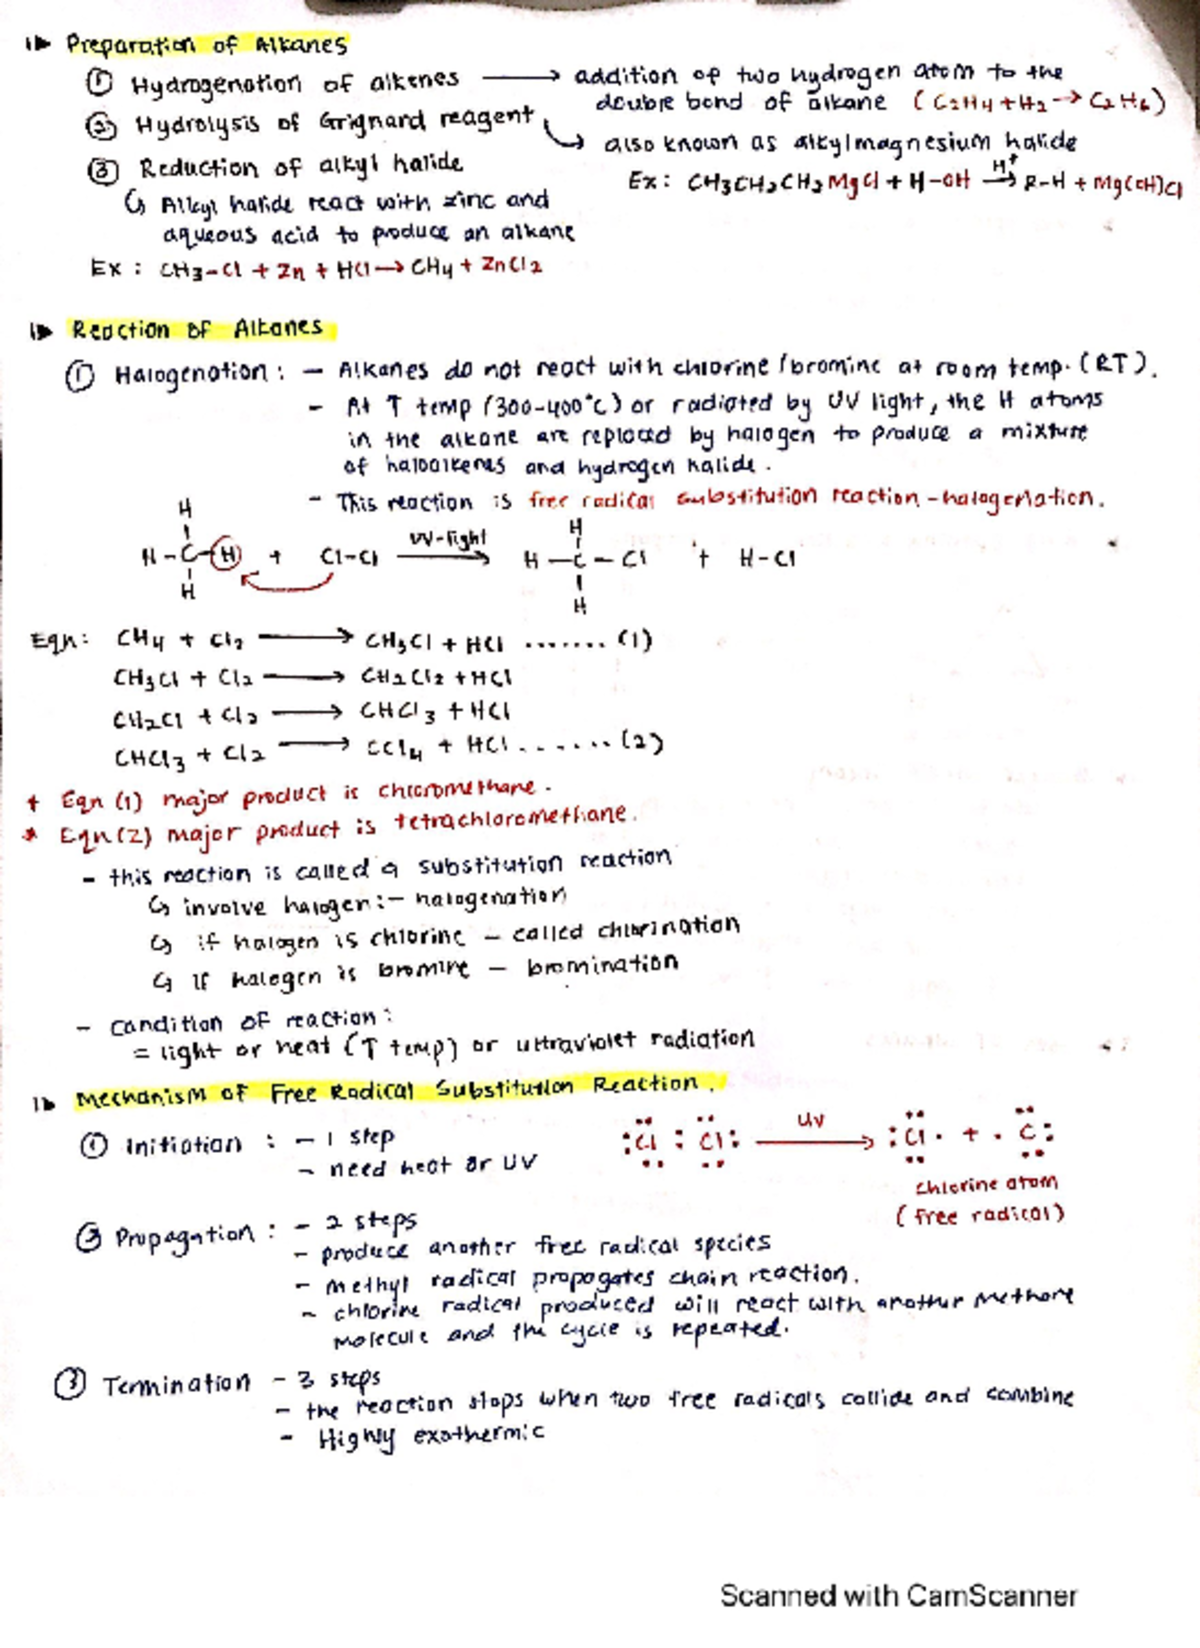 Preparation of Alkanes
① Hydrogenation of alkenes → addition of two hydrogen atom to the
double bond of alkane (C2H4 + H2 → C2H6)
② Hydrolysis of Grignard reagent
↳ also known as alkylmagnesium halide
Ex: CH3CH2CH2MgCl + H-OH →H+ R-H + Mg(OH)Cl
③ Reduction of alkyl halide
↳ Alkyl halide react with zinc and
aqueous acid to produce an alkane
Ex: CH3-Cl + Zn + HCl → CH4 + ZnCl2
Reaction of Alkanes
① Halogenation: - Alkanes do not react with chlorine/bromine at room temp. (RT).
- At ↑ temp (300-400°C) or radiated by UV light, the H atoms
in the alkane are replaced by halogen to produce a mixture
of haloalkenes and hydrogen halide.
- This reaction is free radical substitution reaction - halogenation.
H H
H-C-H + Cl-Cl UV-light → H-C-Cl + H-Cl
H H
Eqn: CH4 + Cl2 → CH3Cl + HCl ....... (1)
CH3Cl + Cl2 → CH2Cl2 + HCl
CH2Cl + Cl2 → CHCl3 + HCl
CHCl3 + Cl2 → CCl4 + HCl ....... (2)
* Eqn (1) major product is chloromethane.
* Eqn (2) major product is tetrachloromethane.
- this reaction is called a substitution reaction
↳ involve halogen:- halogenation
↳ if halogen is chlorine - called chlorination
↳ If halogen is bromine - bromination
- condition of reaction:
= light or heat (↑ temp) or ultraviolet radiation
Mechanism of Free Radical Substitution Reaction.
① Initiation : - 1 step
- need heat or UV
:Cl : Cl: UV → :Cl· + ·C:
chlorine atom
(free radical)
② Propagation : - 2 steps
- produce another free radical species
- methyl radical propagates chain reaction.
- chlorine radical produced will react with another methane
molecule and the cycle is repeated.
③ Termination - 3 steps
- the reaction stops when two free radicals collide and combine
- Highly exothermic
Scanned with CamScanner